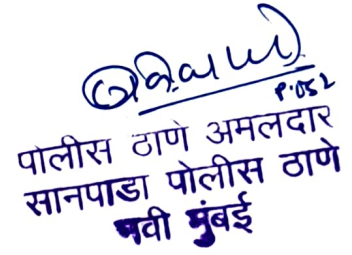 पोलीस ठाणे अमलदार
सानपाडा पोलीस ठाणे
नवी मुंबई